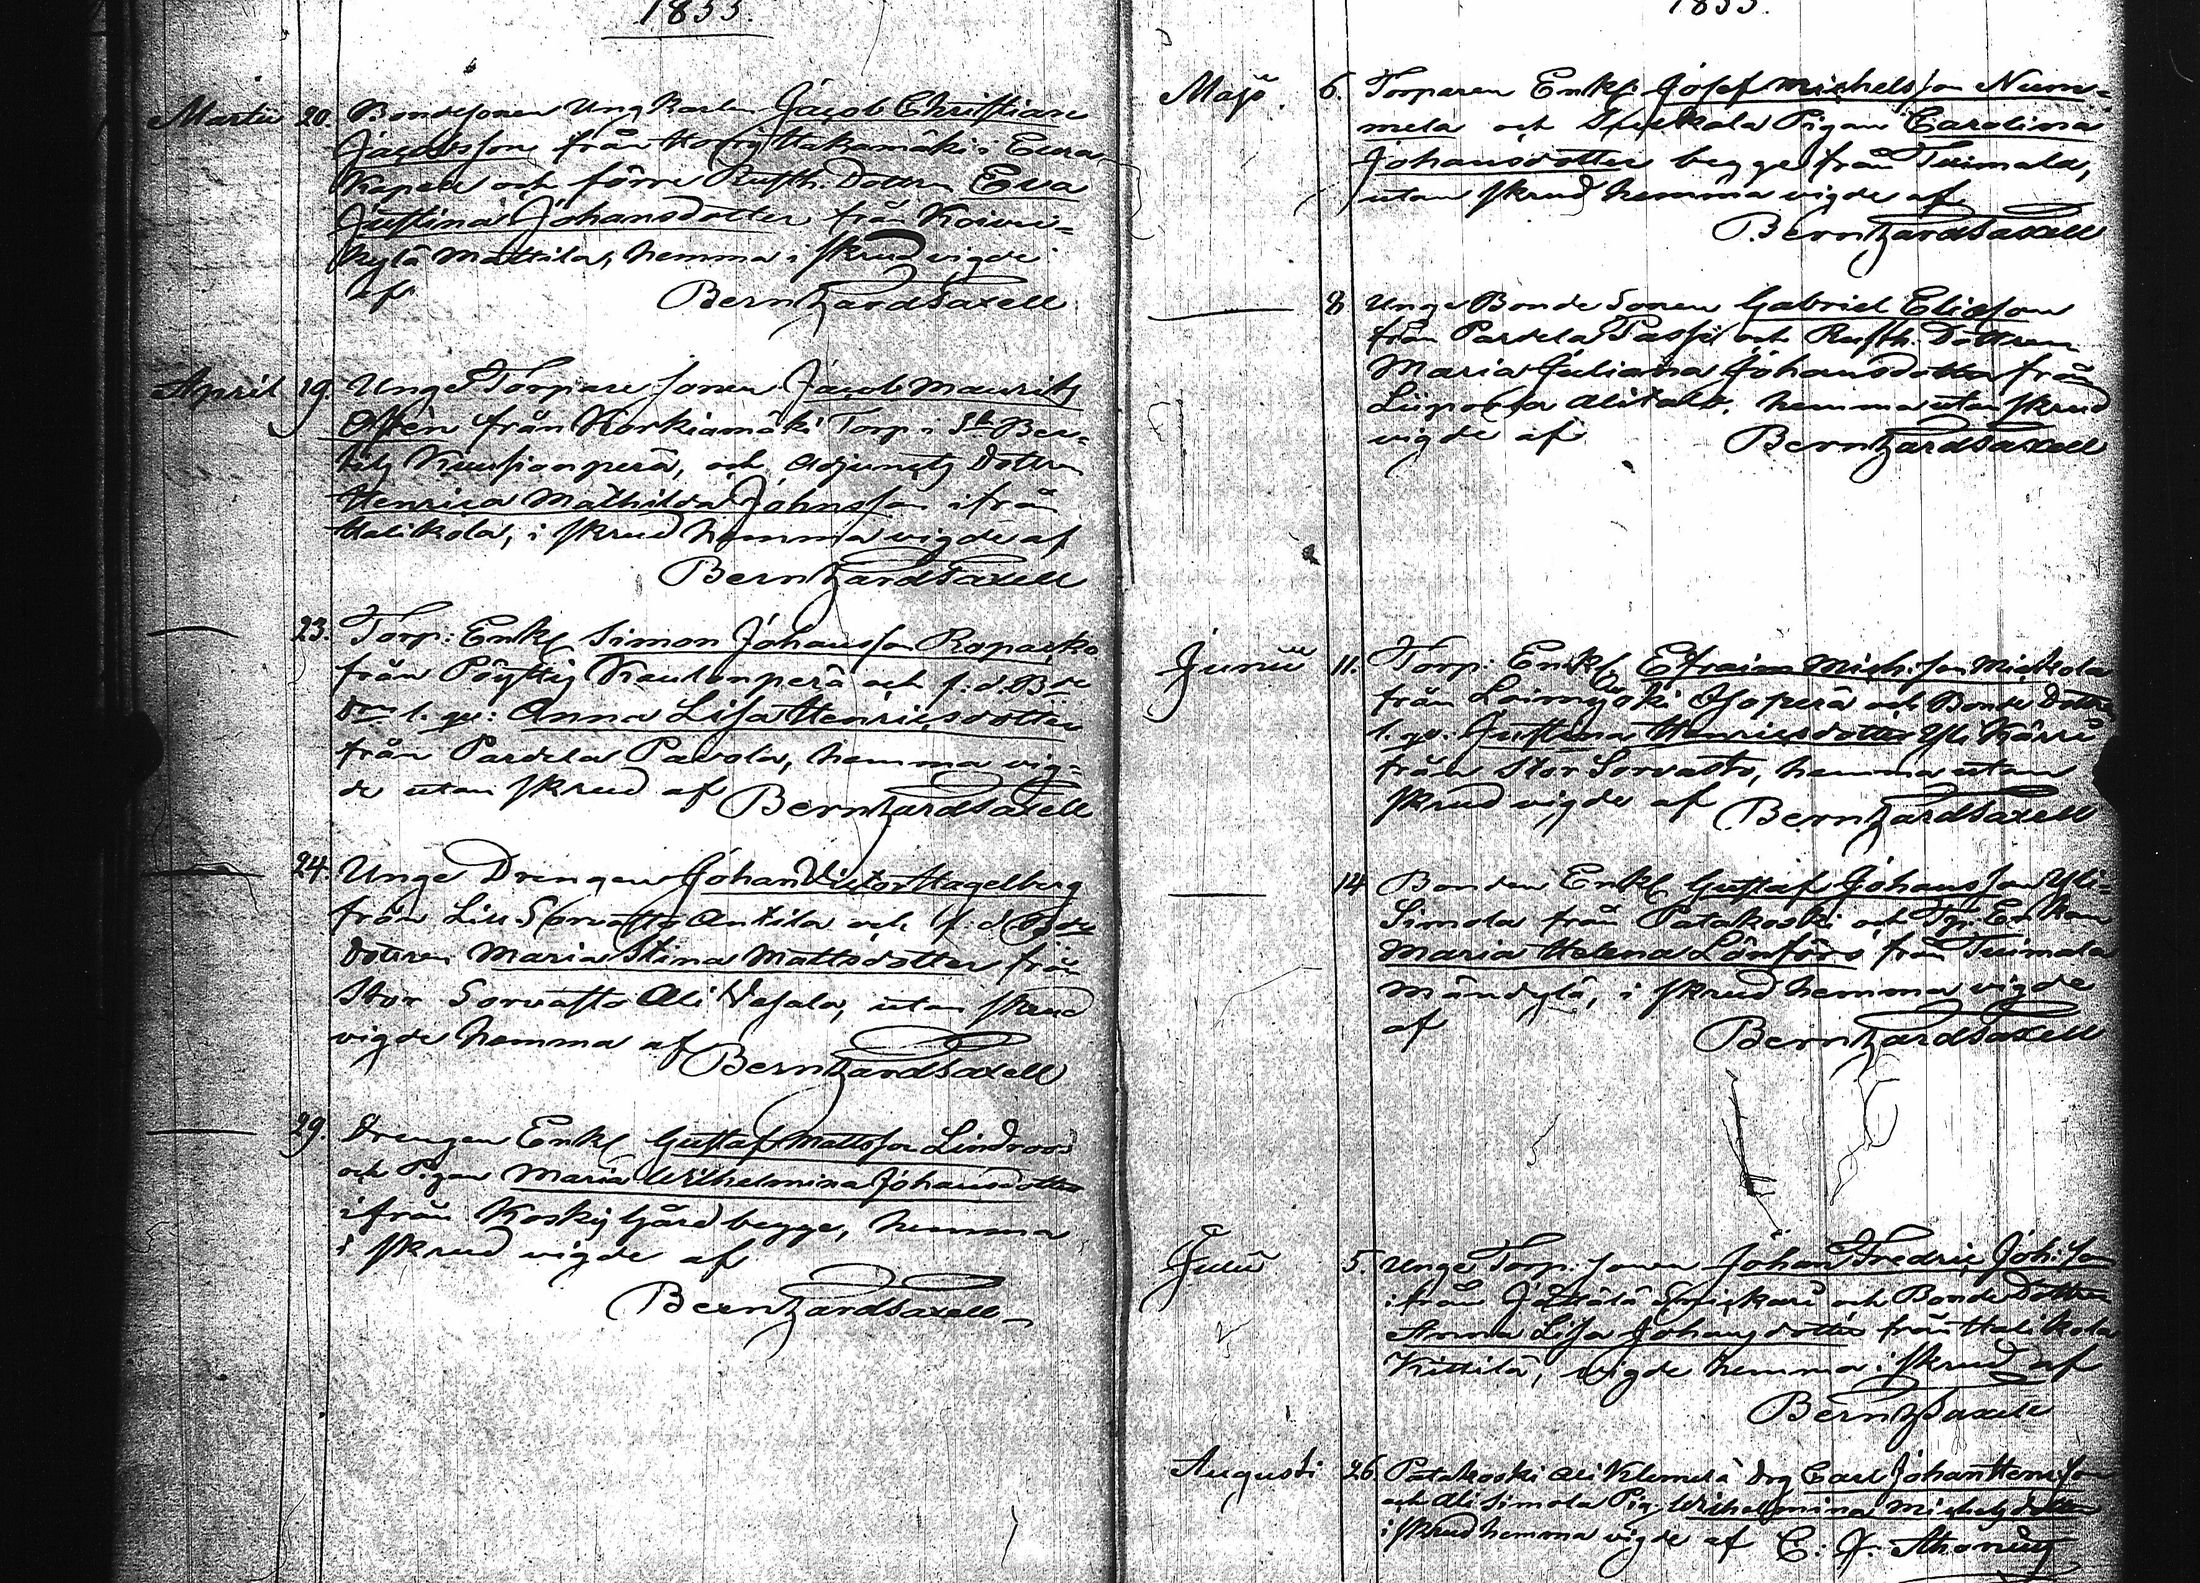 1833.
Martii 20. Bondesonen Ung Karlen Jacob Christian
Jacobsson från Honginkakamäki i Eura
Kapell och förre Rusth. Dottren Eva
Justina Johansdotter från Koivu=
kylä Mattila, hemma i skrud vigde
af Bernhard Saxell
April 19. Unge Torpare sonen Jacob Maurits
från Korkiamäki Torp i St Ber=
tils Kuusianperä, och Adjuncts Dottren
Henrica Mathilda Johnsson ifrån
Halikola, i skrud hemma vigde af
Bernhard Saxell
23. Torp: Enkl. Simon Johansson Roparko
från Pöyttis Kaulanperä och f: d. Bde
Dtrn l. qv: Anna Lisa Henricsdotter
från Pardela Pavola, hemma vig=
de utan skrud af Bernhard Saxell
24. Unge Drengen Johan Victor Hagelberg
från Lill Sorvasto Antila och f: d. Bde
dottren Maria Stina Mattsdotter från
Stor Sorvasto Ali Vesala, utan skrud
vigde hemma af Bernhard Saxell
29. Drengen Enkl. Gustaf Mattsson Lindroos
och Pigan Maria Wilhelmina Johansdotter
ifrån Koskis Gård begge, hemma
i skrud vigde af
Bernhard Saxell
1833.
Maji 6. Torparen Enkl: Josef Michelsson Num=
mela och Pigan Carolina
Johansdotter begge från Tuimala,
utan skrud hemma vigde af
Bernhard Saxell
8 Unge Bonde Sonen Gabriel Eliasson
från Pardela Passi och Rusth. Dottren
Maria Juliana Johansdotter från
Liipola Alitalo, hemma utan skrud
vigde af Bernhard Saxell
Junii 11. Torp: Enkl. Efraim Mich:son Mickola
från Loimijoki Isoperä och Bonde Dottren
l. qv: Justina Henricsdotter Yli Kärri
från Stor Sorvasto, hemma utan
skrud vigde af Bernhard Saxell
14 Bonden Enkl. Gustaf Johansson Yli=
Simola från Patakoski och Enkan
Maria Helena Lönfors från Tuimala
i skrud hemma vigde
af Bernhard Saxell
Julii 5. Unge Torp: sonen Johan Fredric Joh:son
ifrån Jättälä och Bonde Dottren
Anna Lisa Johansdotter från Halikola
Kittilä, vigde hemma i skrud af
Bernh Saxell
Augusti 26. Patakoski Ali Klemelä Drg Carl Johan Henr:son
och Ali Simola Pig. Wilhelmina Michelsdotter
i skrud hemma vigde af C: J: